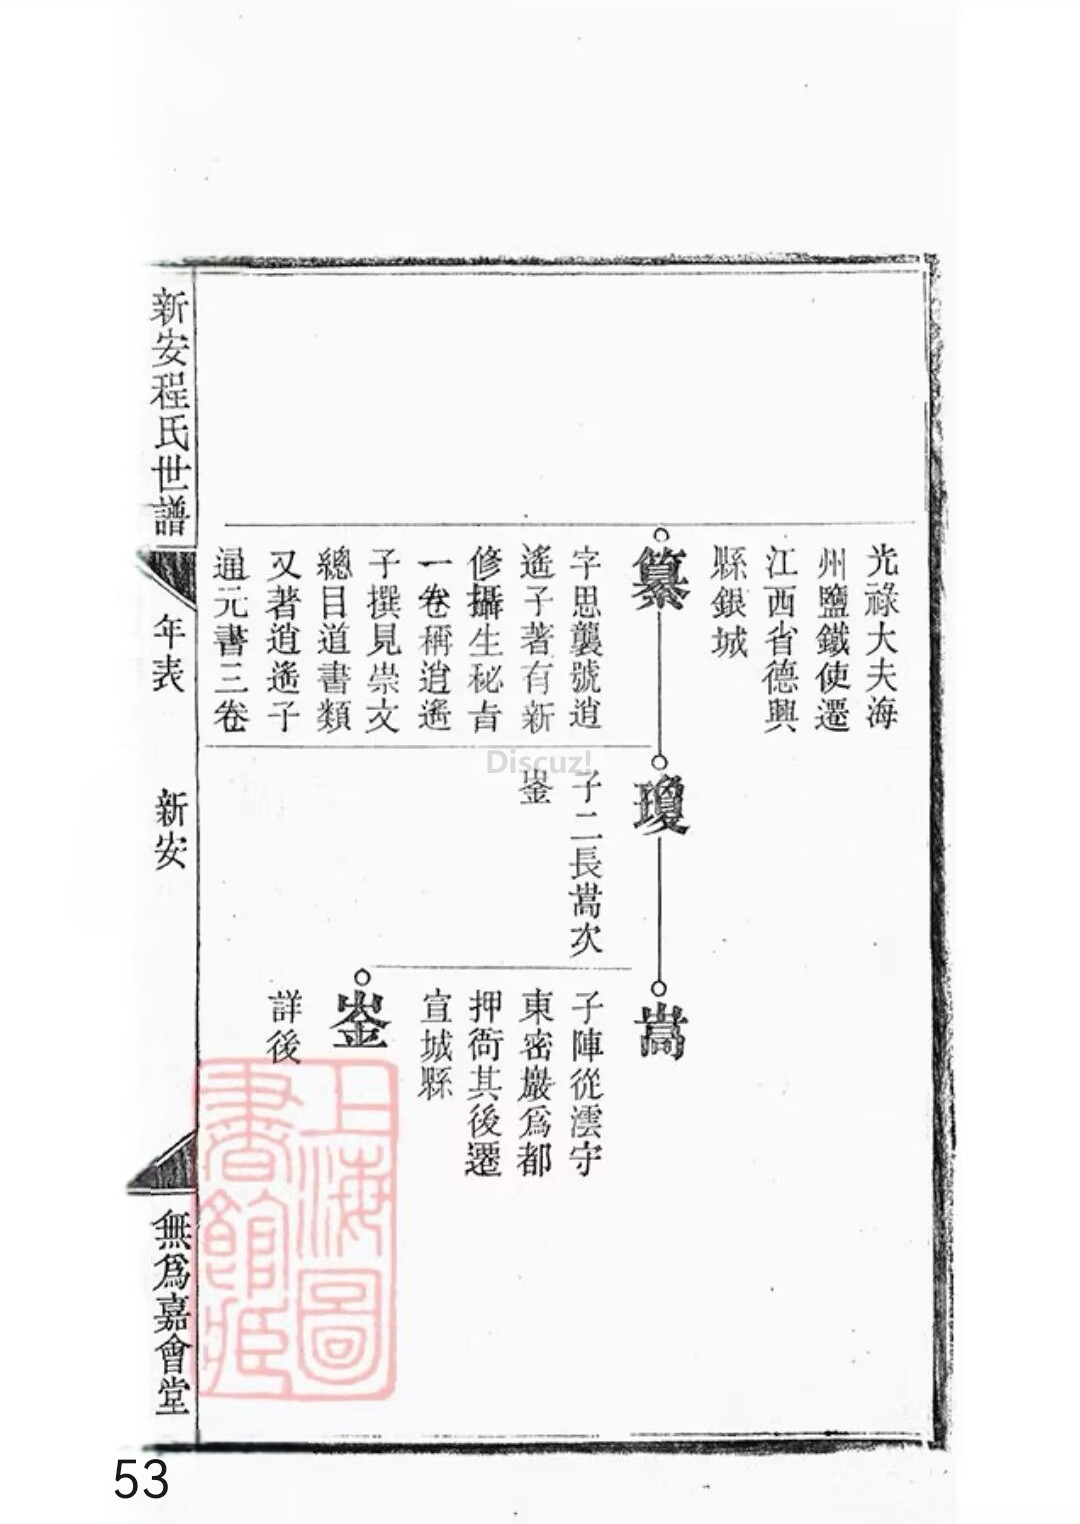 光祿大夫海
州鹽鐵使遷
江西省德興
縣銀城
纂
字思襲號逍
遙子著有新
修攝生秘旨
一卷稱逍遙
子撰見崇文
總目道書類
又著逍遙子
通元書三卷
瓊
子二長嵩次
崟
嵩
子陣從澐守
東密巖爲都
押衙其後遷
宣城縣
崟
詳後
新安程氏世譜
年表
新安
無爲嘉會堂
上海圖
書館藏
Discuz!
53